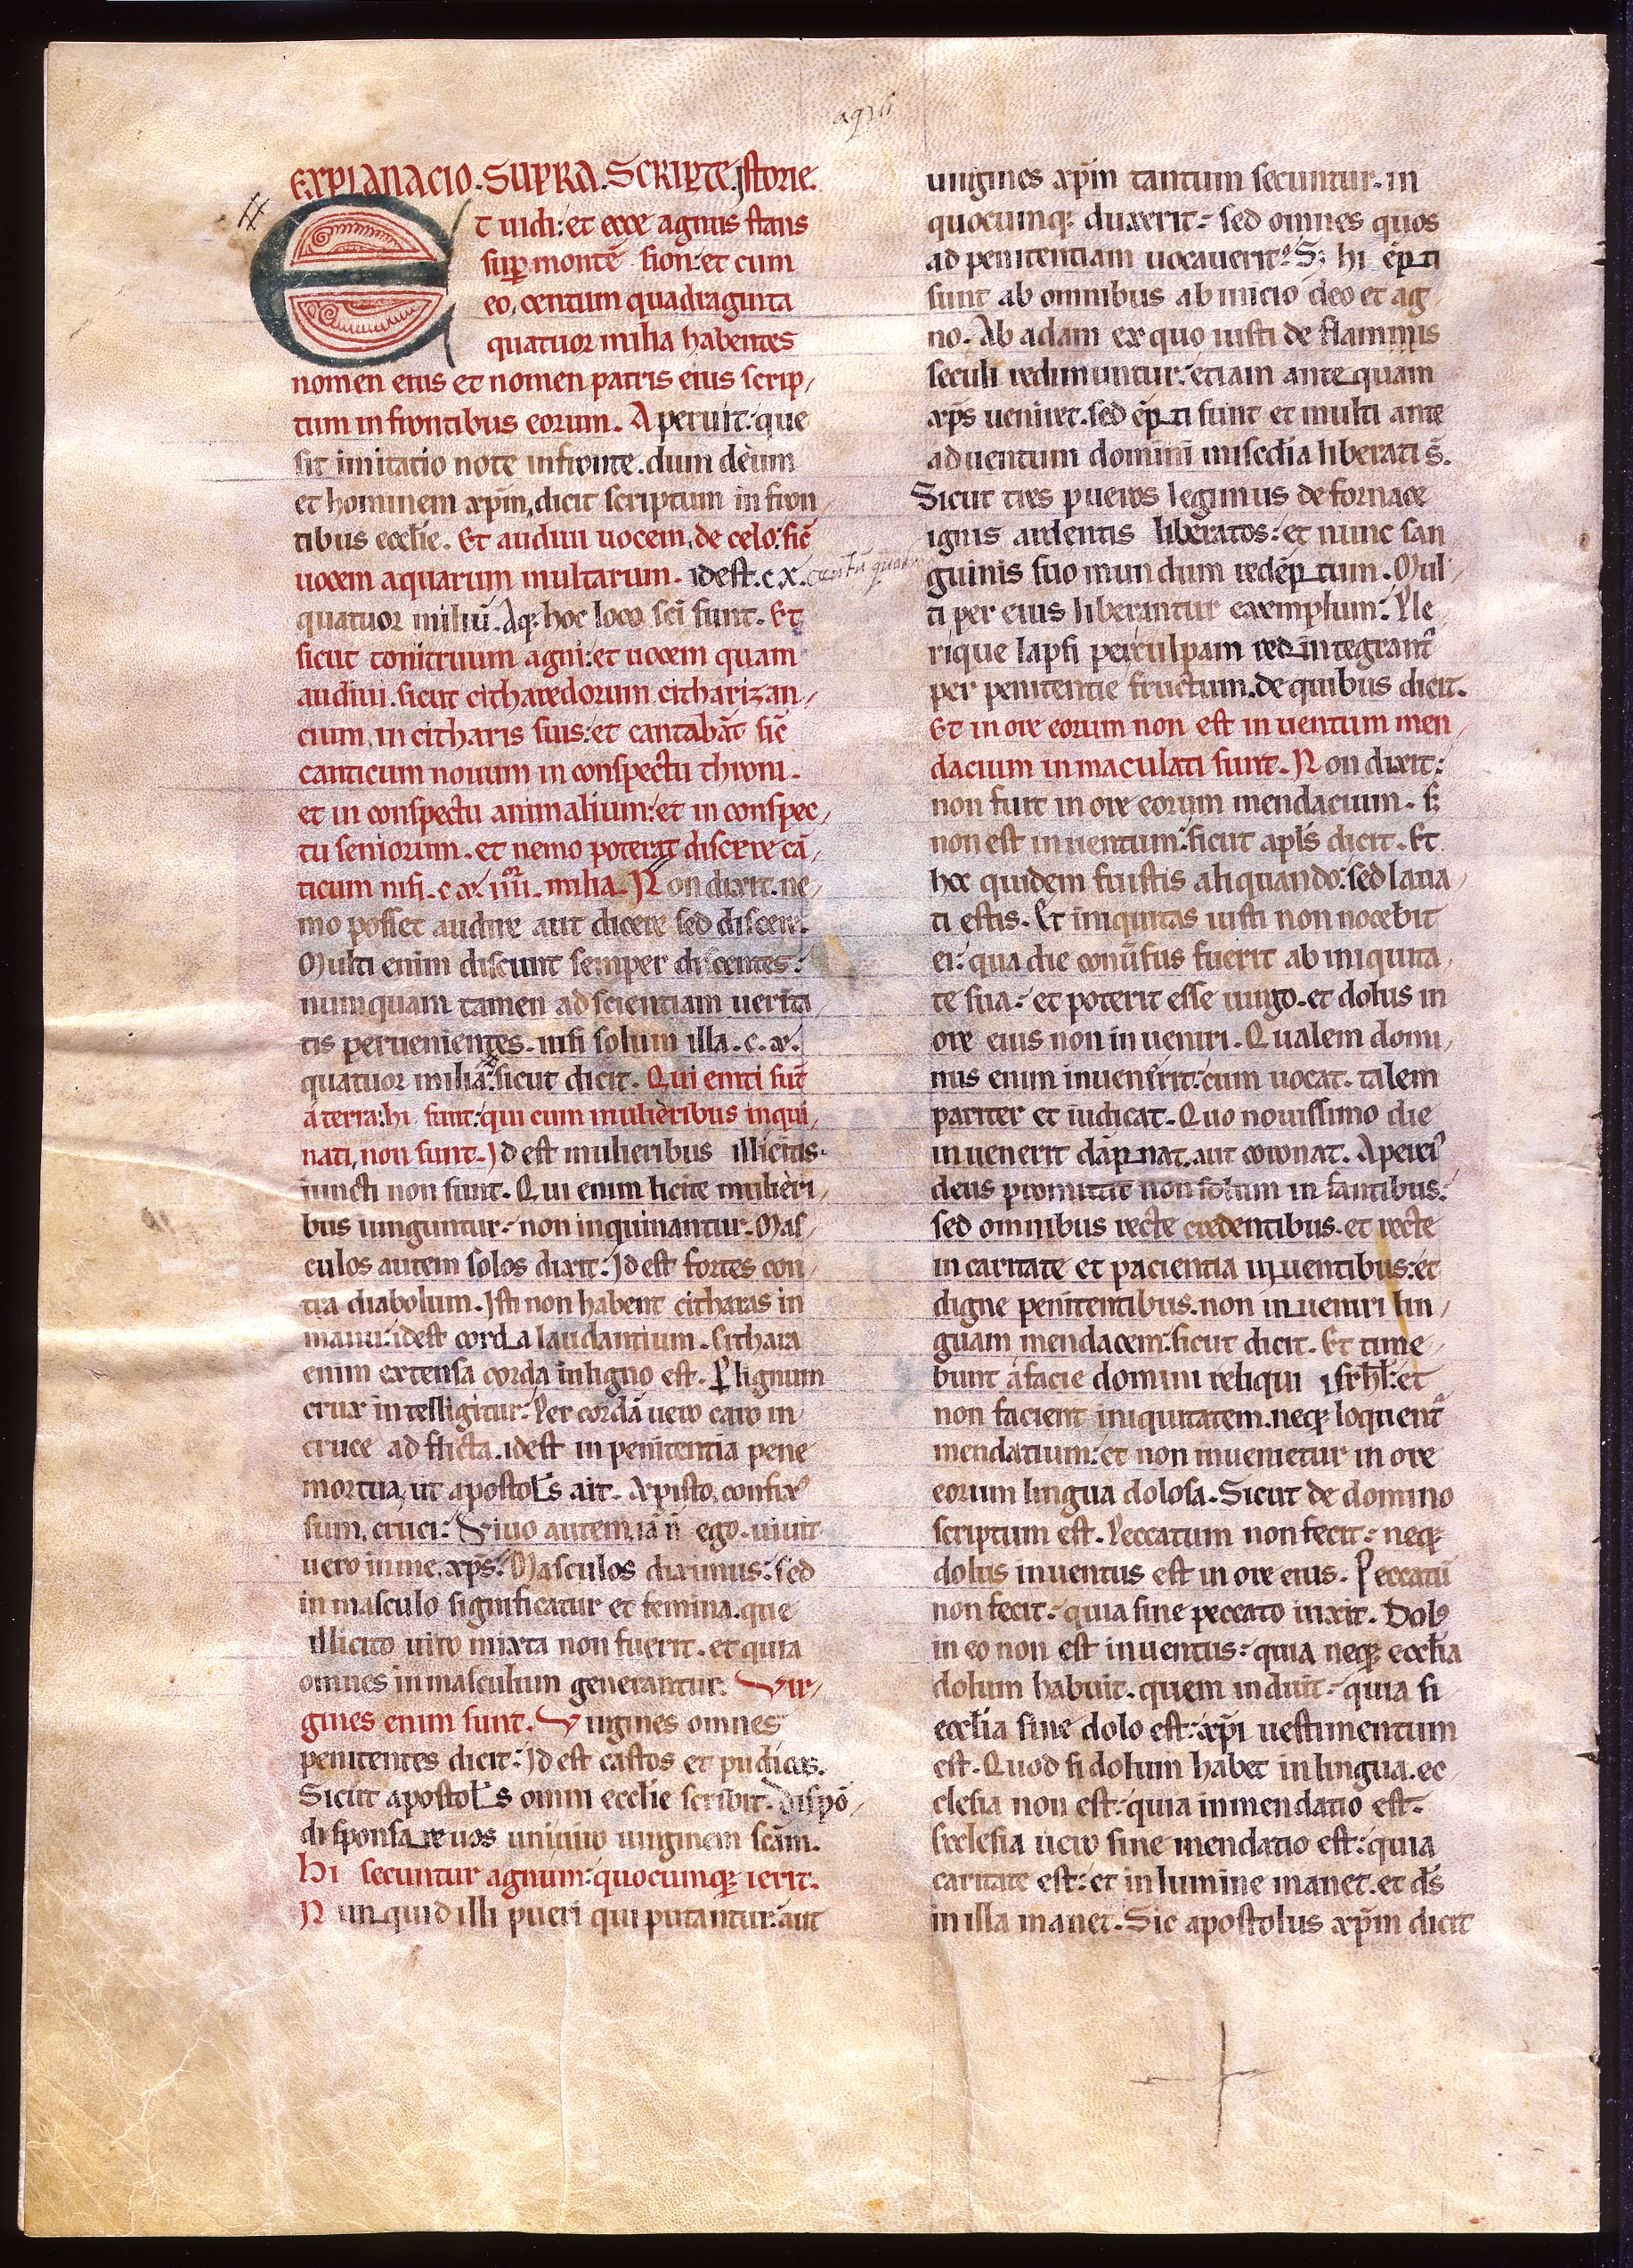 agnꝰ
EXPLANACIO. SUPRA. SCRIPTE. istorie.
Et uidi: et ecce agnus stans
suꝑ montē sion: et cum
eo, centum quadraginta
quatuor milia habentes
nomen eius et nomen patris eius scrip,
tum in frontibus eorum. Aperuit: que
sit imitatio note in fronte. dum deum
et hominem xp̄m, dicit scriptum in fron
tibus eccl̄ie. Et audiui uocem, de celo: sic̄
uocem aquarum multarum. idest. c. x.
quatuor miliū. Aq̨ hoc loco sc̄i sunt. Et
sicut tonitruum agni: et uocem quam
audiui. sicut citharedorum citharizan,
cium, in citharis suis: et cantabāt sic̄
canticum nouum in conspectu throni.
et in conspectu animalium: et in conspec,
tu seniorum. et nemo poterat discere cā,
ticum nisi. c. x. iiii. milia. Non dixit. ne,
mo posset audire aut dicere sed discere.
Multi enim discunt semper discentes:
numquam tamen ad scientiam uerita,
tis peruenientes. nisi solum illa. c. x.
quatuor milia: sicut dicit. Qui emti sūt
a terra: hi sunt: qui cum mulieribus inqui,
nati, non sunt. Id est mulieribus illicitis.
iuncti non sunt. Qui enim licite mulieri,
bus iunguntur: non inquinantur. Mas,
culos autem solos dixit: Id est fortes con,
tra diabolum. Isti non habent citharas in
manu: idest corda laudantium. Cithara
enim extensa corda in ligno est. Ꝑ lignum
crux intelligitur: Per cordā uero caro in
cruce adflicta. idest in penitentia pene
mortua, ut apostol̄s ait. Xpisto, confixꝰ
sum, cruci: Viuo autem, iā n̄ ego. uiuit
uero in me. xp̄s: Masculos diximus: sed
in masculo significatur et femina. que
illicito uiro mixta non fuerit. et quia
omnes in masculum generantur. Vir,
gines enim sunt. Virgines omnes
penitentes dicit: Id est castos et pudicos.
Sicut apostol̄s omni eccl̄ie scribit. Dispō,
disponsare uos uni uiro uirginem sc̄am.
Hi secuntur agnum: quocumq̨ ierit.
Nunquid illi pueri qui putantur: aut
uirgines xp̄m tantum secuntur. in
quocumq̨ duxerit: sed omnes quos
ad penitentiam uocauerit? S; hi ēpti
sunt ab omnibus ab inicio deo et ag,
no. Ab adam ex quo iusti de flammis
seculi redimuntur: etiam antequam
xp̄s ueniret. sed ēpti sunt et multi ante
aduentum domini misc̄dia liberati s̄.
Sicut tres pueros legimus de fornace
ignis ardentis liberatos: et nunc san
guinis suo mundum redēptum. Mul,
ti per eius liberantur exemplum: Ple,
rique lapsi per culpam redintegrantᷣ
per penitentie fructum. de quibus dicit.
Et in ore eorum non est inuentum men,
dacium inmaculati sunt. Non dixit:
non fuit in ore eorum mendacium. s;
non est inuentum: sicut apl̄s dicit. Et
hec quidem fuistis aliquando: sed laua,
ti estis. Et iniquitas iusti non nocebit
ei: qua die conūsus fuerit ab iniquita,
te sua: et poterit esse uirgo. et dolus in
ore eius non inueniri. Qualem domi,
nus enim inuenerit: cum uocat. talem
pariter et iudicat. Quo nouissimo die
inuenerit dāpnat. aut coronat. Aperiᷣ
deus promittit non solum infantibus:
sed omnibus recte credentibus. et recte
in caritate et pacientia uiuentibus: et
digne penitentibus. non inueniri lin,
guam mendacem: sicut dicit. Et time,
bunt a facie domini reliqui isrhl̄: et
non facient iniquitatem. neq̨ loquentᷣ
mendatium: et non inuenietur in ore
eorum lingua dolosa. Sicut de domino
scriptum est. Peccatum non fecit: neq̨
dolus inuentus est in ore eius. Peccatū
non fecit: quia sine peccato uixit. Dolꝰ
in eo non est inuentus: quia neq̨ eccl̄ia
dolum habuit. quem induit: quia si
eccl̄ia sine dolo est: xp̄i uestimentum
est. Quod si dolum habet in lingua. ec,
clesia non est: quia in mendatio est.
Ecclesia uero sine mendatio est: quia
caritate est: et in lumine manet. et d̄s
in illa manet. Sic apostolus xp̄m dicit